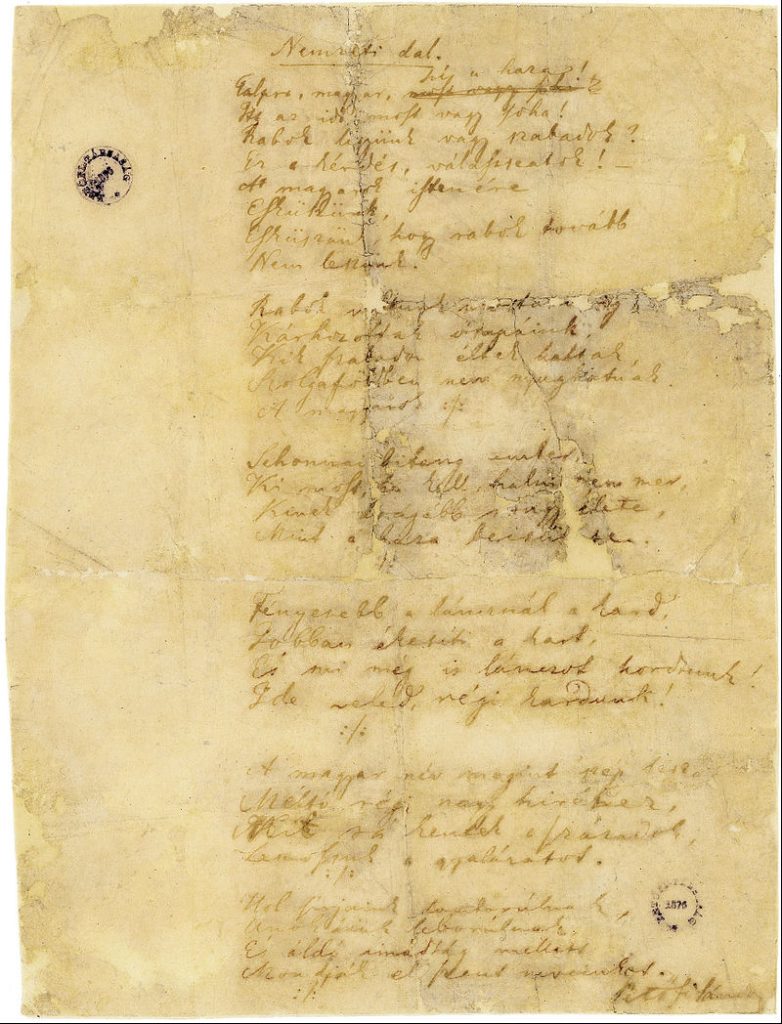 Nemzeti dal.
hí a haza!
Talpra, magyar,
Itt az idő, most vagy soha!
Rabok legyünk vagy szabadok?
Ez a kérdés, válasszatok! –
A magyarok istenére
Esküszünk,
Esküszünk, hogy rabok tovább
Nem leszünk.
Rabok voltunk mostanáig
Kárhozottak ősapáink,
Kik szabadon éltek haltak,
Szolgaföldben nem nyughatnak.
A magyarok :/:
Sehonnai bitang ember,
Ki most, ha kell, halni nem mer,
Kinek drágább rongy élete,
Mint a haza becsülete.
:/:
Fényesebb a láncznál a kard,
Jobban ékesiti a kart,
És mi még is lánczot hordunk!
Ide veled, régi kardunk!
:/:
A magyar név megint szép lesz
Méltó régi nagy hiréhez,
Mit rá kentek a századok,
Lemossuk a gyalázatot.
:/:
Hol sírjaink domborúlnak,
Unokáink leborúlnak
És áldó imádság mellett
Mondják el szent neveinket.
:/:
Petőfi Sándor
1876